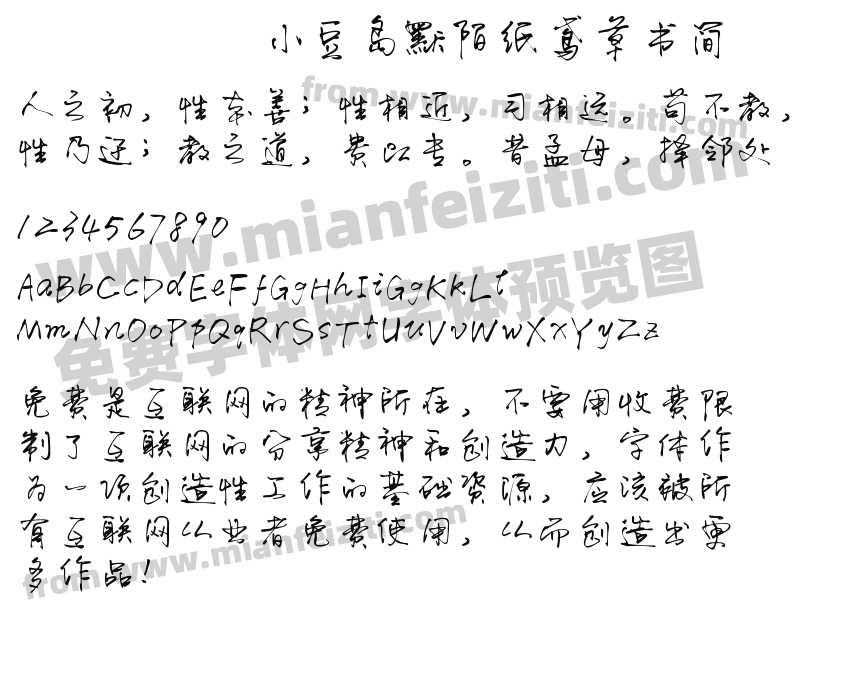 小豆岛默陌纸鸢草书简
人之初，性本善；性相近，习相远。苟不教，
性乃迁；教之道，贵以专。昔孟母，择邻处
1234567890
AaBbCcDdEeFfGgHhIiGgKkLt
MmNnOoPpQqRrSsTtUuVvWwXxYyZz
免费是互联网的精神所在，不要用收费限
制了互联网的分享精神和创造力，字体作
为一项创造性工作的基础资源，应该被所
有互联网从业者免费使用，从而创造出更
多作品！
from www.mianfeiziti.com
www.mianfeiziti.com
免费字体网字体预览图
from www.mianfeiziti.com